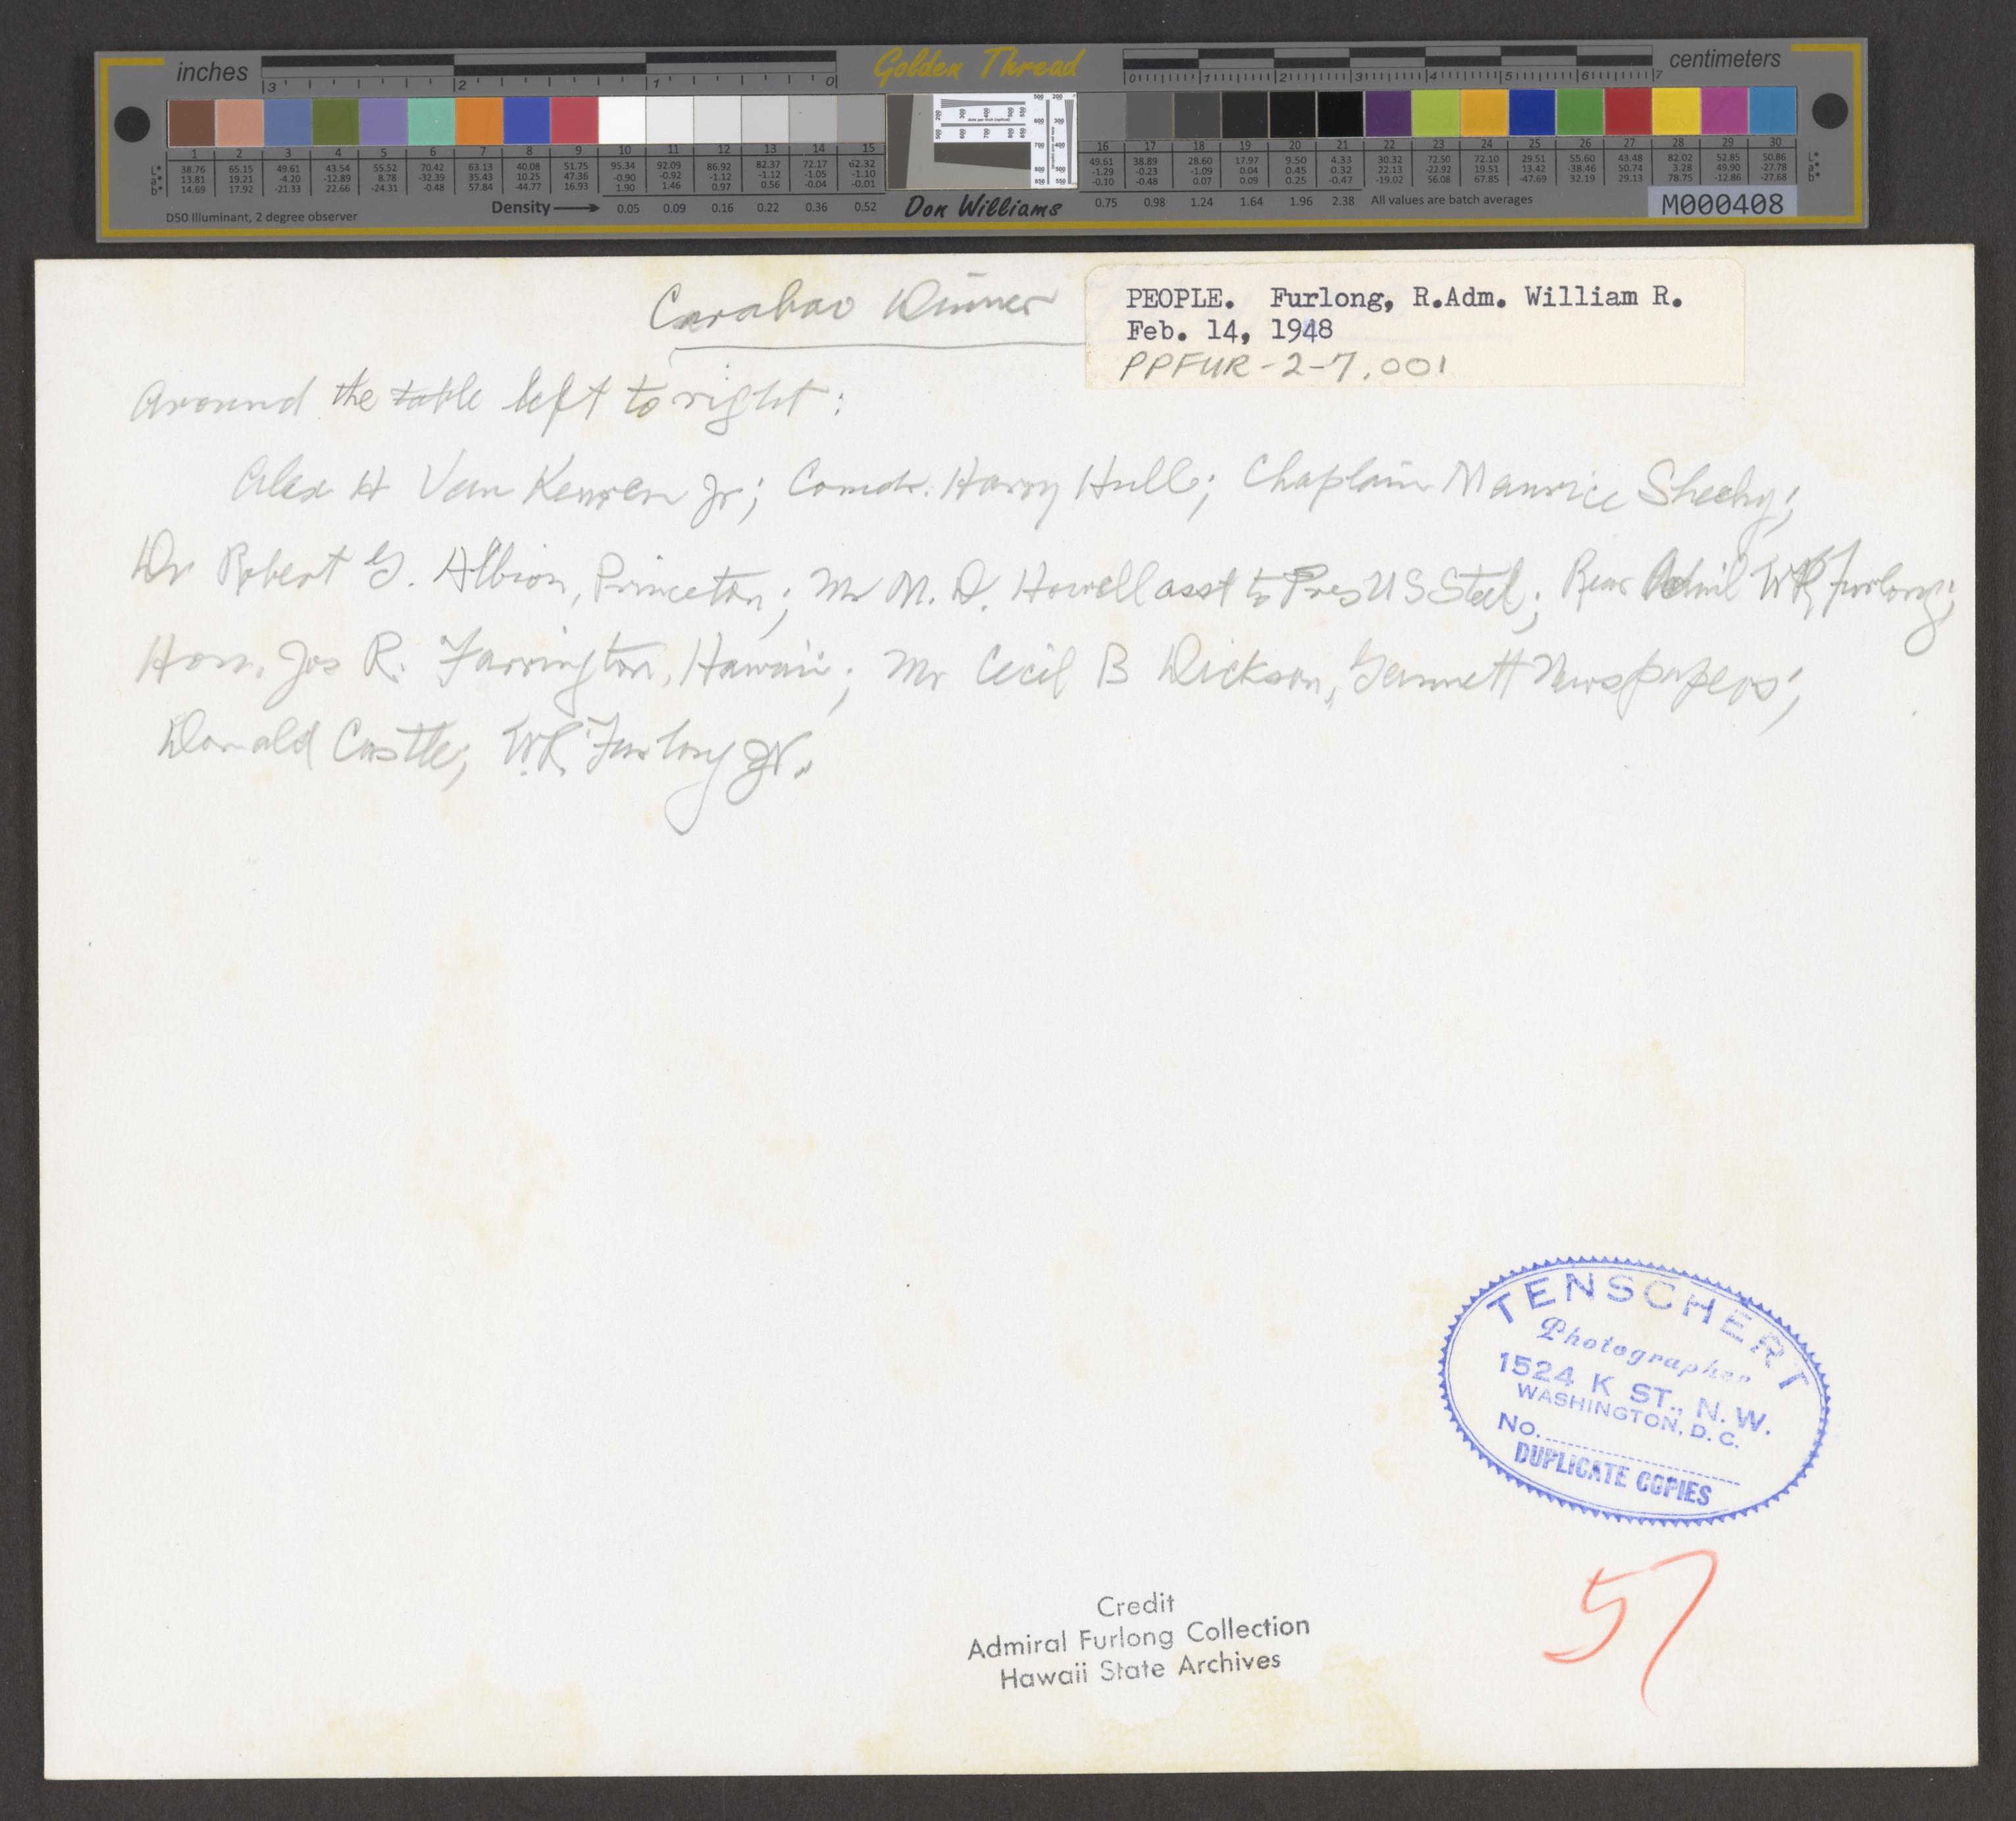 inches
3 2 1 0
Golden Thread
0 1 2 3 4 5 6 7
centimeters
1 2 3 4 5 6 7 8 9 10 11 12 13 14 15
L* 38.76 65.15 49.61 43.54 55.52 70.42 63.13 40.08 51.75 95.34 92.09 86.92 82.37 72.17 62.32
a* 13.81 19.21 -4.20 -12.89 8.78 -32.39 35.43 10.25 47.36 -0.90 -0.92 -1.12 -1.12 -1.05 -1.10
b* 14.69 17.92 -21.33 22.66 -24.31 -0.48 57.84 -44.77 16.93 1.90 1.46 0.97 0.56 -0.04 -0.01
16 17 18 19 20 21 22 23 24 25 26 27 28 29 30
49.61 38.89 28.60 17.97 9.50 4.33 30.32 72.50 72.10 29.51 55.60 43.48 82.02 52.85 50.86 L*
-1.29 -0.23 -1.09 0.04 0.45 0.32 22.13 -22.92 19.51 13.42 -38.46 50.74 3.28 49.90 -27.78 a*
-0.10 -0.48 0.07 0.09 0.25 -0.47 -19.02 56.08 67.85 -47.69 32.19 29.13 78.75 -12.86 -27.68 b*
D50 Illuminant, 2 degree observer
Density 0.05 0.09 0.16 0.22 0.36 0.52
Don Williams
0.75 0.98 1.24 1.64 1.96 2.38 All values are batch averages
M000408
Carabao Dinner
PEOPLE. Furlong, R.Adm. William R.
Feb. 14, 1948
PPFUR-2-7.001
Around the table left to right:
Alex H Van Keuren Jr; Comdr. Harry Hull; Chaplain Maurice Sheehy;
Dr Robert G. Albion, Princeton; Mr M. D. Howell asst to Pres US Steel; Rear Adml WR Furlong;
Hon. Jos R. Farrington, Hawaii; Mr Cecil B Dickson, Gannett Newspapers;
Donald Castle; W.R. Furlong Jr.
TENSCHERT
Photographer
1524 K ST., N. W.
WASHINGTON, D. C.
No.
DUPLICATE COPIES
57
Credit
Admiral Furlong Collection
Hawaii State Archives